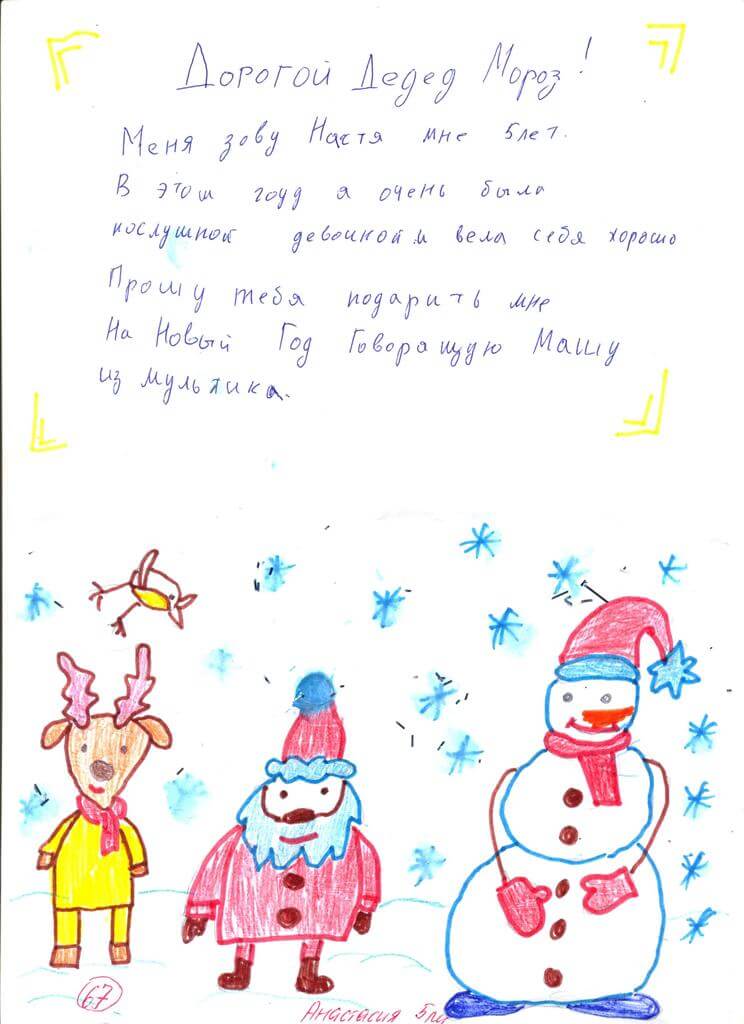 Дорогой Дедед Мороз!
Меня зову Настя мне 5лет.
В этом гоуд я очень была
послушной девочкой и вела себя хорошо
Прошу тебя подарить мне
На Новый Год Говоращую Машу
из мультика.
67
Анастасия 5ле